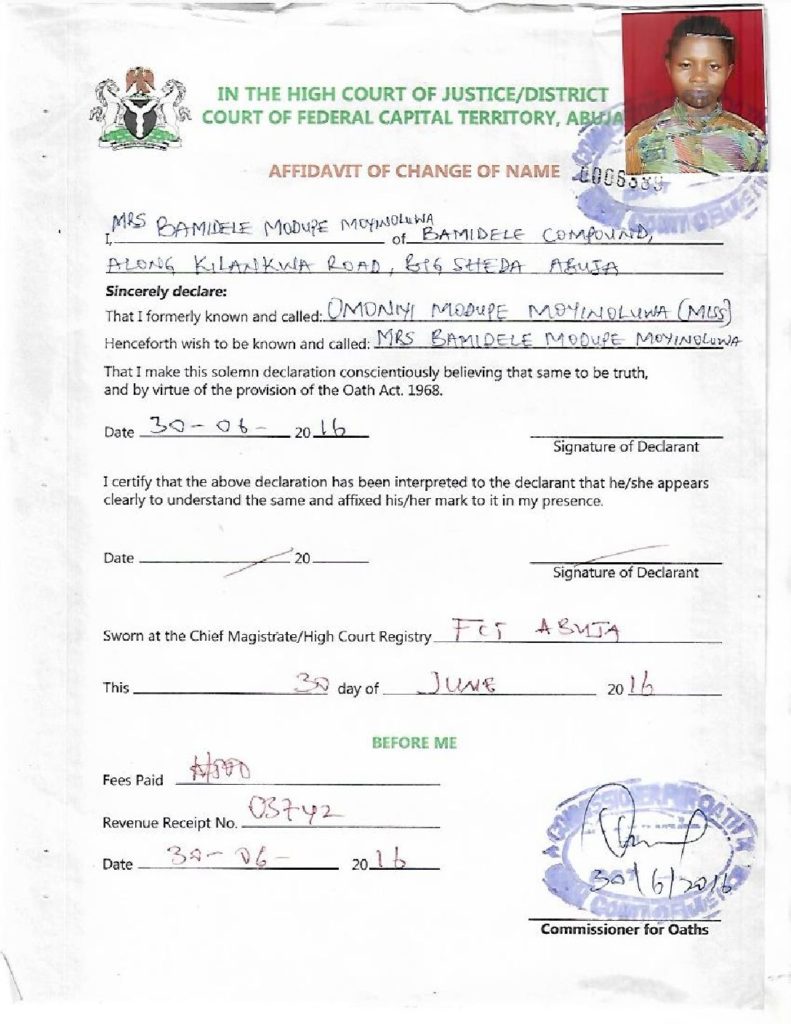 IN THE HIGH COURT OF JUSTICE/DISTRICT
COURT OF FEDERAL CAPITAL TERRITORY, ABUJA
AFFIDAVIT OF CHANGE OF NAME
I, MRS BAMIDELE MODUPE MOYINOLUWA of BAMIDELE COMPOUND,
ALONG KILANKWA ROAD, BIG SHEDA ABUJA
Sincerely declare:
That I formerly known and called: OMONIYI MODUPE MOYINOLUWA (MISS)
Henceforth wish to be known and called: MRS BAMIDELE MODUPE MOYINOLUWA
That I make this solemn declaration conscientiously believing that same to be truth,
and by virtue of the provision of the Oath Act. 1968.
Date 30-06- 2016
Signature of Declarant
I certify that the above declaration has been interpreted to the declarant that he/she appears
clearly to understand the same and affixed his/her mark to it in my presence.
Date 20
Signature of Declarant
Sworn at the Chief Magistrate/High Court Registry FCT ABUJA
This 30 day of JUNE 2016
BEFORE ME
Fees Paid
Revenue Receipt No. 03742
Date 30-06- 2016
30/6/2016
Commissioner for Oaths